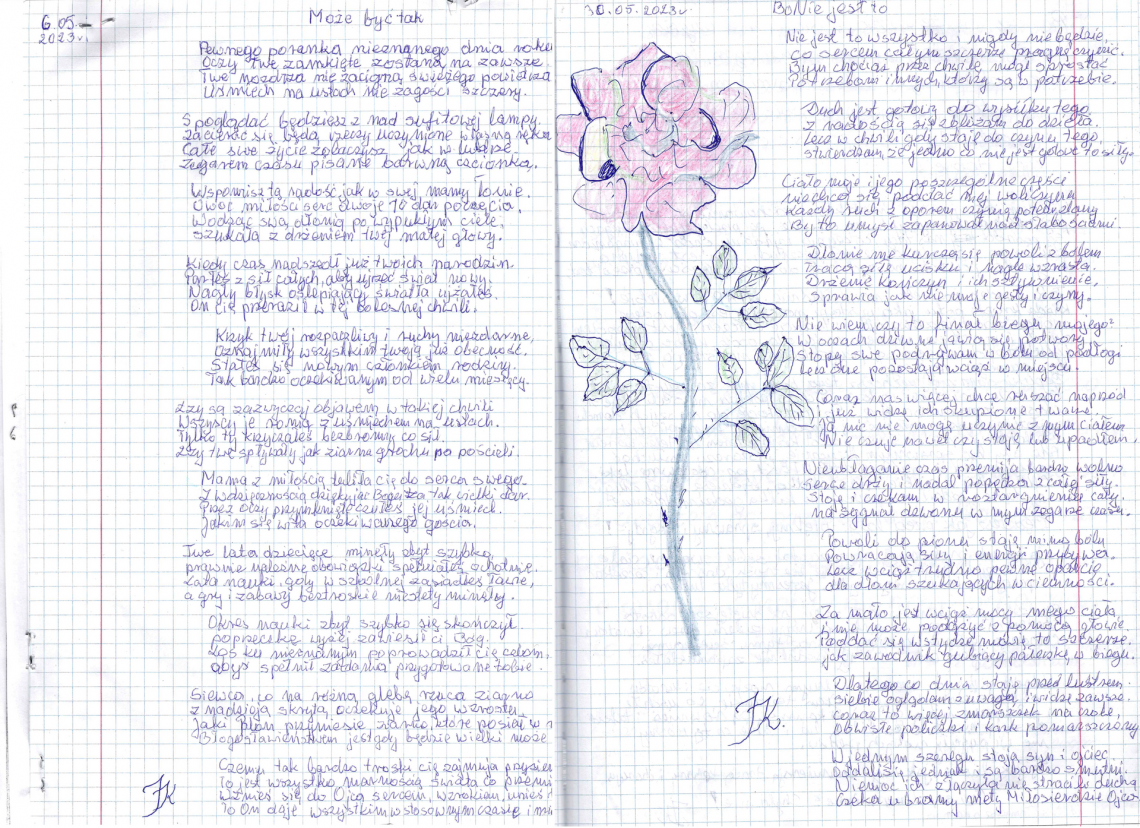 6.05.
2023r.
Może być tak
Pewnego poranka nieznanego dnia roku
Oczy Twe zamknięte zostaną na zawsze.
Twe nozdrza nie zaciągną świeżego powietrza
Uśmiech na ustach nie zagości szczery.
Spoglądać będziesz z nad sufitowej lampy.
Zacierać się będą rzeczy uczynione własną ręką
Całe swe życie zobaczysz jak w
Zegarem czasu pisane barwną czcionką.
Wspomnisz tą radość, jak w swej mamy łonie.
Owoc miłości serc dwoje to dar poczęcia.
Wodząc swą dłonią po wypukłym ciele,
szukała z drżeniem twej małej głowy.
Kiedy czas nadszedł już twoich narodzin
Parłeś z sił całych, aby ujrzeć świat nowy.
Nagły błysk oślepiający światła ujrzałeś.
On cię przeraził w tej bolesnej chwili.
Krzyk twój rozpaczliwy i ruchy niezdarne,
Oznajmiły wszystkim twoją już obecność.
Stałeś się nowym członkiem rodziny.
Tak bardzo oczekiwanym od wielu miesięcy.
Łzy są zazwyczaj objawem w takiej chwili
Wszyscy je ronią z uśmiechem na ustach.
Tylko ty krzyczałeś bezbronny co sił.
Łzy twe spływały jak ziarna grochu po pościeli.
Mama z miłością tuliła cię do serca swego.
Z wdzięcznością dziękując Bogu za tak wielki dar.
Przez oczy przymknięte czułeś jej uśmiech.
Jakim się wita oczekiwanego gościa.
Twe lata dziecięce minęły zbyt szybko,
prawnie wplecne obowiązki spełniałeś ochotnie.
Lata nauki, gdy w szkolnej zasiadłeś ławie,
a gry i zabawy beztroskie niestety minęły.
Okres nauki zbyt szybko się skończył.
poprzeczkę wyżej zawiesił ci Bóg.
Los ku nieznanym poprowadził cię celom,
abyś spełnił zadania przygotowane tobie.
Siewca, co na różną glebę rzuca ziarno
z nadzieją skrytą oczekuje jego wzrostu
Jaki plon przyniesie ziarno, które posiał w
Błogosławieństwem jest gdy będzie wielki może
Czemu tak bardzo troski cię zajmują
To jest wszystko marnością świata co
Wznieś się do Ojca sercem, wzrokiem, unieś
To On daje wszystkim w stosownym czasie i
JK
30.05.2023r.
Bo Nie jest to
Nie jest to wszystko i nigdy nie będzie,
Co sercem całym szczerze pragnę czynić.
Bym chociaż przez chwilę mógł sprostać
Potrzebom innych, którzy są w potrzebie.
Duch jest gotowy do wysiłku tego
z radością się zbliżam do dzieła.
Lecz w chwili gdy staję do czynu tego,
stwierdzam, że jedno co nie jest gotowe to siły.
Ciało moje i jego poszczególne części
nie chcą się poddać mej woli czynu
Każdy ruch z oporem czynią
By to umysł zapanował nad słabościami.
Dłonie me kurczą się powoli z bólem
Tracą siłę uścisku i nagle wzrasta.
Drżenie kończyn i ich sztywnienie,
Sprawia jak nie moje gesty i czyny.
Nie wiem, czy to finał biegu mojego?
W oczach dziwne jawią się potwory
Stopy swe podrywam w bólu od podłogi
Lecz one pozostają wciąż w miejscu.
Coraz nas więcej chce ruszać naprzód
i już widzę ich skupione twarze.
Ja nic nie mogę uczynić z mym ciałem.
Nie czuję nawet czy stoję lub upadłem.
Nieubłaganie czas przemija bardzo wolno
Serce drży i nadal popędza z całej siły.
Stoję i czekam w roztargnieniu cały.
na sygnał dzwonu w mym zegarze czasu.
Powoli do pionu staję mimo bólu
Powracają siły i energii przybywa.
Lecz wciąż trudno pewne oparcie
dla dłoni szukających w ciemności.
Za mało jest wciąż mocy mego ciała
i nie może podążyć z pomocą głowie.
Poddać się wstydzę mówię to szczerze.
jak zawodnik gubiący pałeczkę w biegu.
Dlatego co dnia staję przed lustrem.
Siebie oglądam z uwagą i widzę zawsze.
coraz to więcej zmarszczek na czole,
Obwisłe policzki i kark pomarszczony
W jednym szeregu stoją syn i ojciec
Oddalili jednak i są bardzo smutni.
Niemoc ich złączyła nie straci w duchu
Czeka u bramy mety Miłosierdzie Ojca
JK.